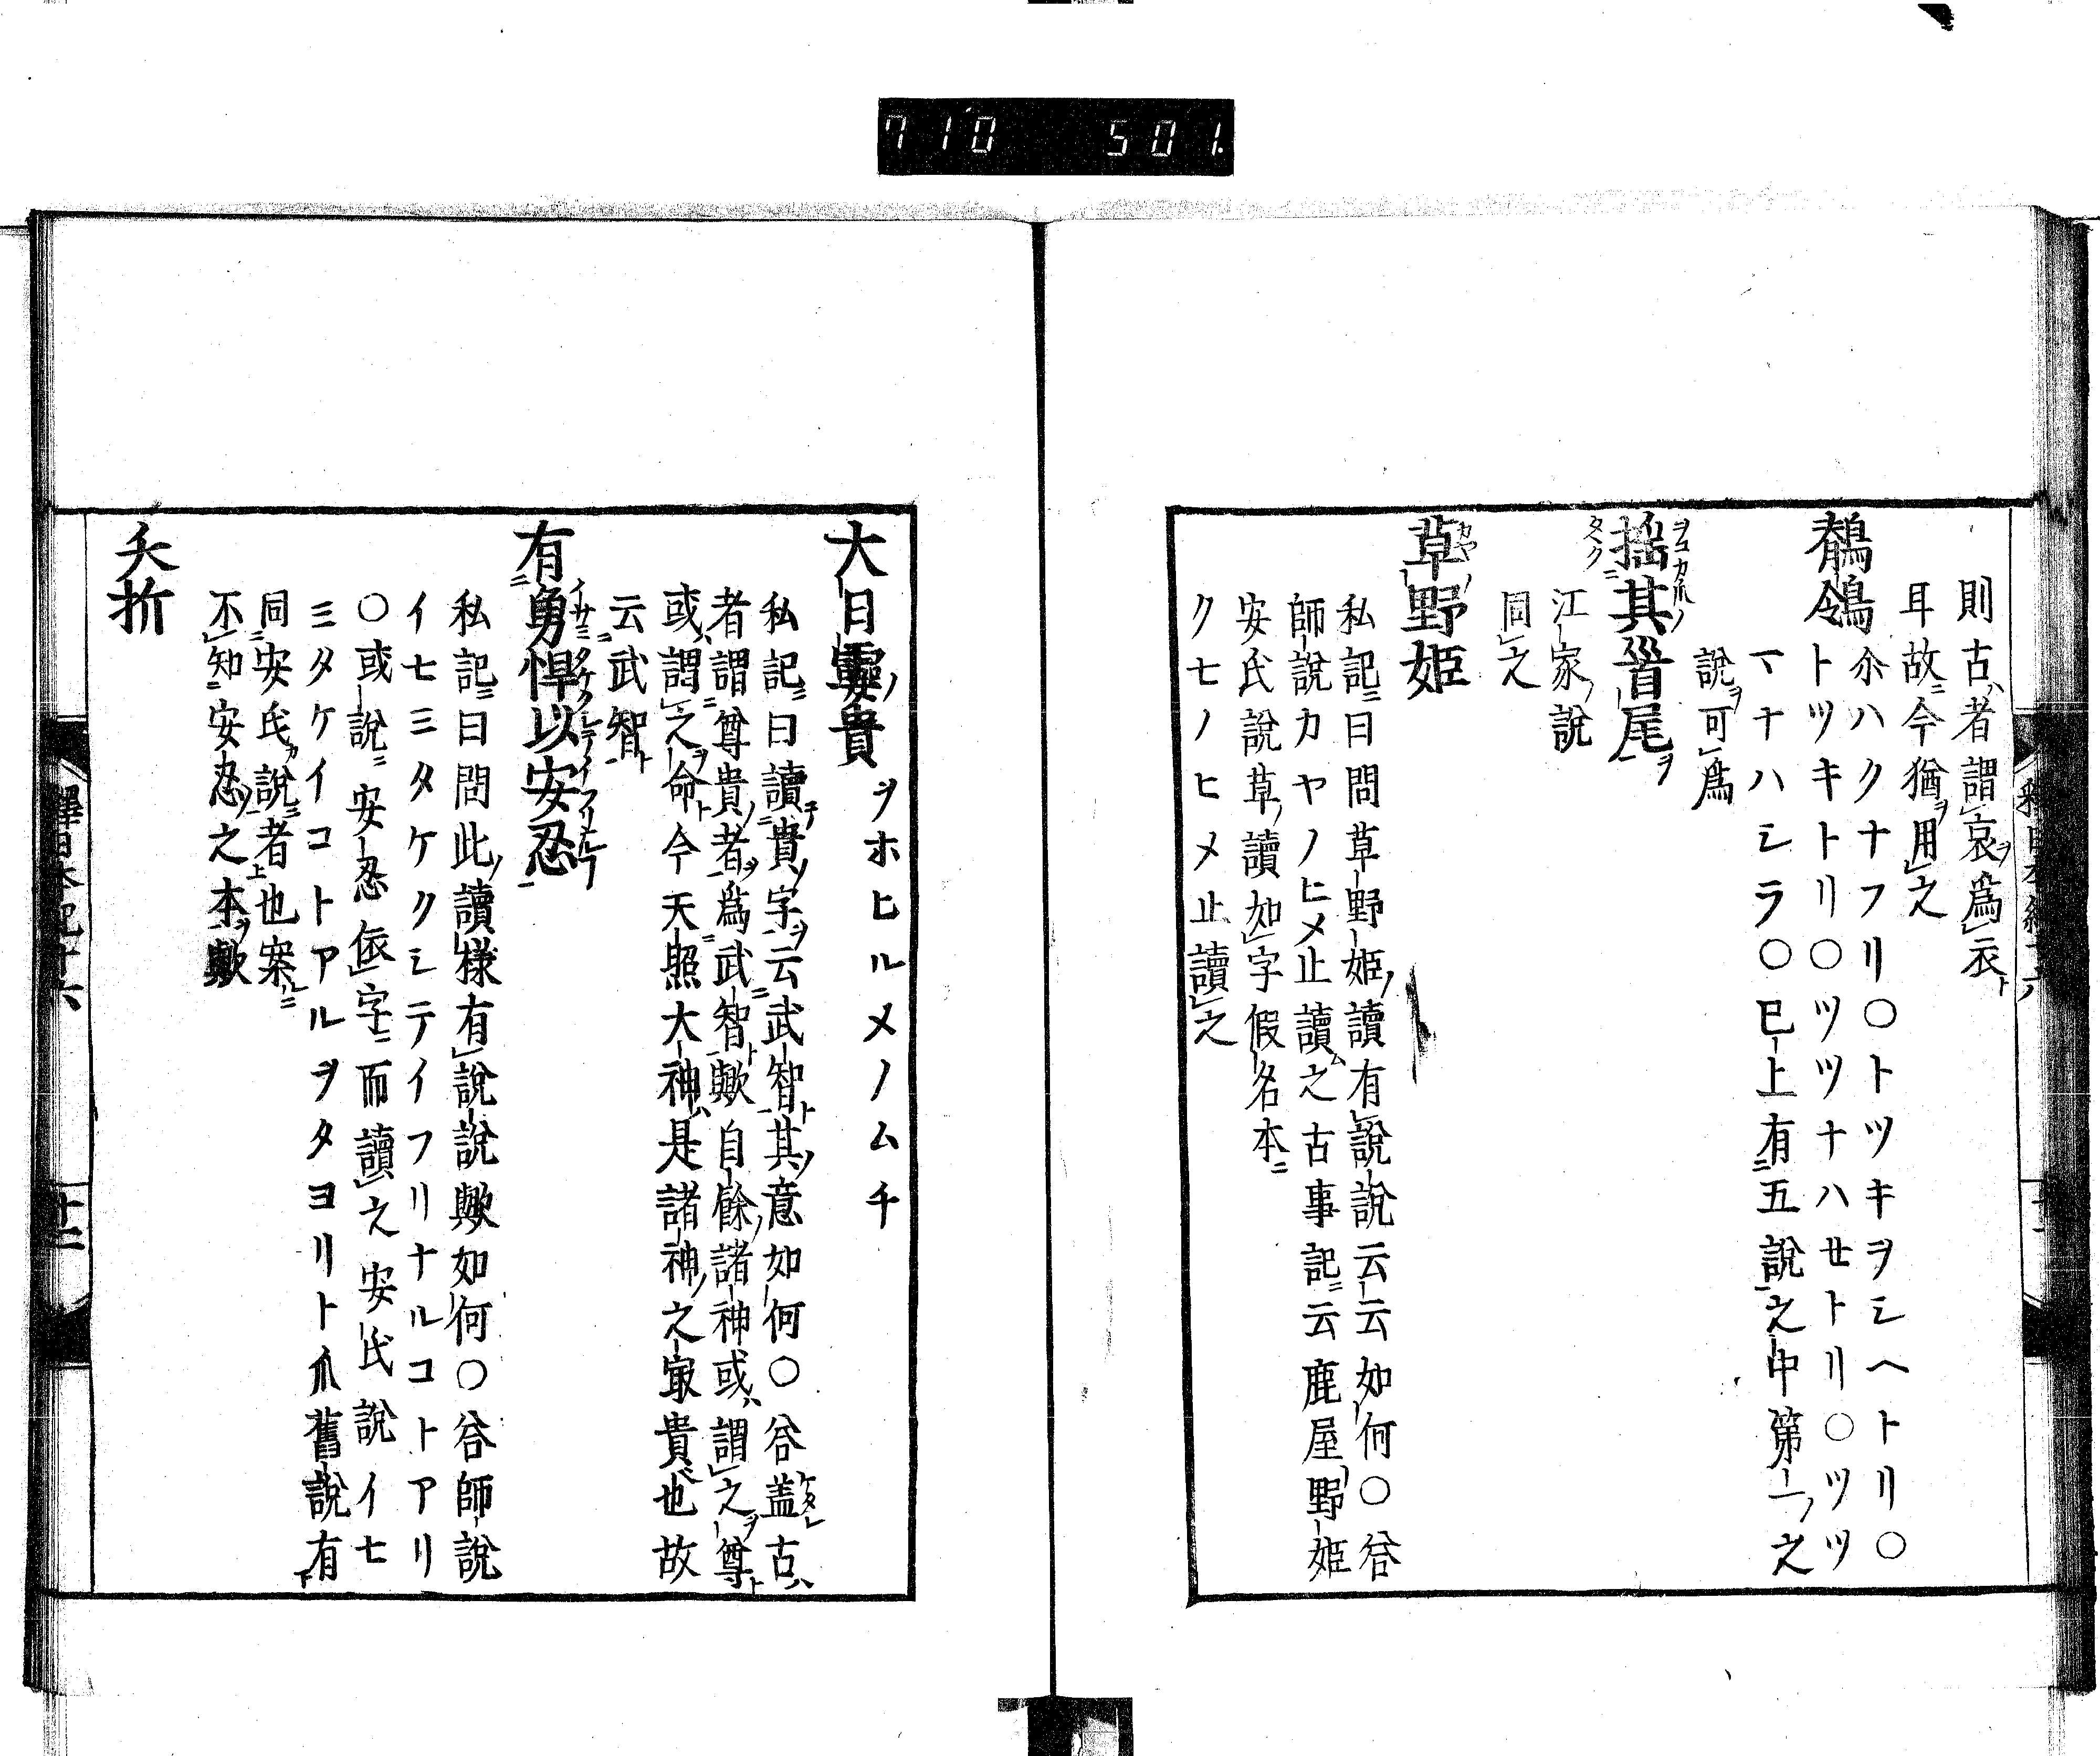 710 501.
則古者謂哀為衣
耳故今猶用之
鶺鴒 尒ハクナフリ○トツキヲシヘトリ○
トツキトリ○ツツナハセトリ○ツツ
マナハシラ○已上有五説之中第一之
説可為
揺其首尾
江家説
同之
草野姫
私記曰問草野姫讀有説説云云如何○答
師説カヤノヒメ止讀之古事記云鹿屋野姫
安氏説草讀如字假名本
クサノヒメ止讀之
大日孁貴 ヲホヒルメノムチ
私記曰讀貴字云武智其意如何○答蓋古
者謂尊貴者為武智歟自餘諸神或謂之尊
或謂之命今天照大神是諸神之最貴也故
云武智
有勇悍以安忍
私記曰問此讀様有説説歟如何○答師説
イサミタケクシテイフリナルコトアリ
○或説安忍依字而讀之安氏説イサ
ミタケイコトアルヲタヨリトス舊説有
同安氏説者也案
不知安忍之本歟
夭折
釋日本紀十六
十二